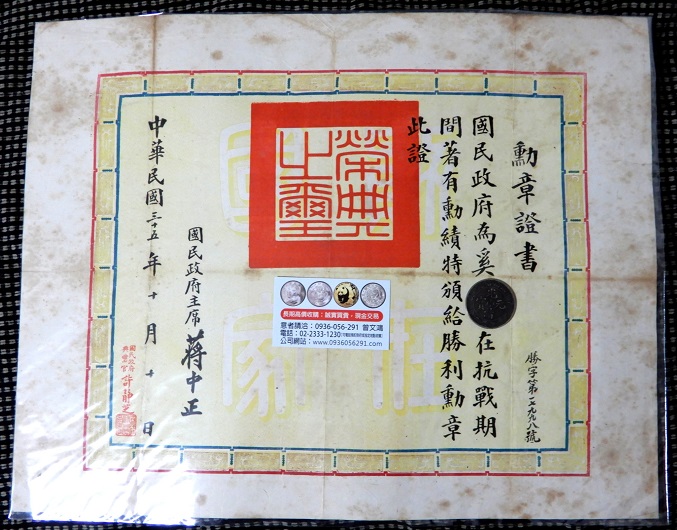 勳章證書
國民政府為奚
在抗戰期
間著有勳績特頒給勝利勳章
此證
榮典之璽
國民政府主席蔣中正
國民政府
典璽官許靜芝
中華民國三十五年十月十日
勝字第一七九九八號
長期高價收購︱誠實買賣・現金交易
意者請洽：0936-056-291 曾文鴻
電話：02-2333-1230
公司網站：www.0936056291.com